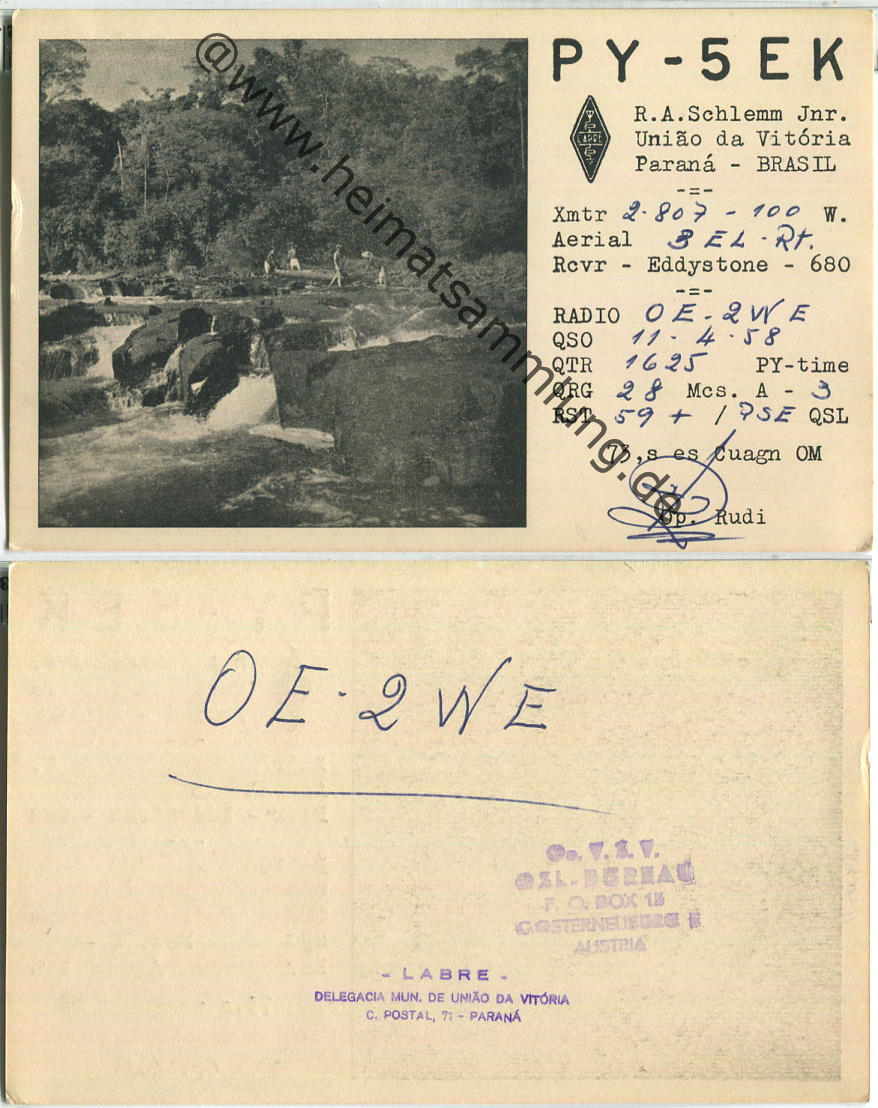 PY-5EK
R.A.Schlemm Jnr.
LABRE
União da Vitória
Paraná - BRASIL
-=-
Xmtr 2.807 - 100 W.
Aerial 3 EL. Rt.
Rcvr - Eddystone - 680
-=-
RADIO OE-2WE
QSO 11-4-58
QTR 1625 PY-time
QRG 28 Mcs. A - 3
RST 59 + / PSE QSL
73,s es Cuagn OM
Op. Rudi
@www.heimatsammlung.de
OE-2WE
Oe. V. S. V.
QSL-BUREAU
P. O. BOX 15
AUSTRIA
- LABRE -
DELEGACIA MUN. DE UNIÃO DA VITÓRIA
C. POSTAL, 71 - PARANÁ